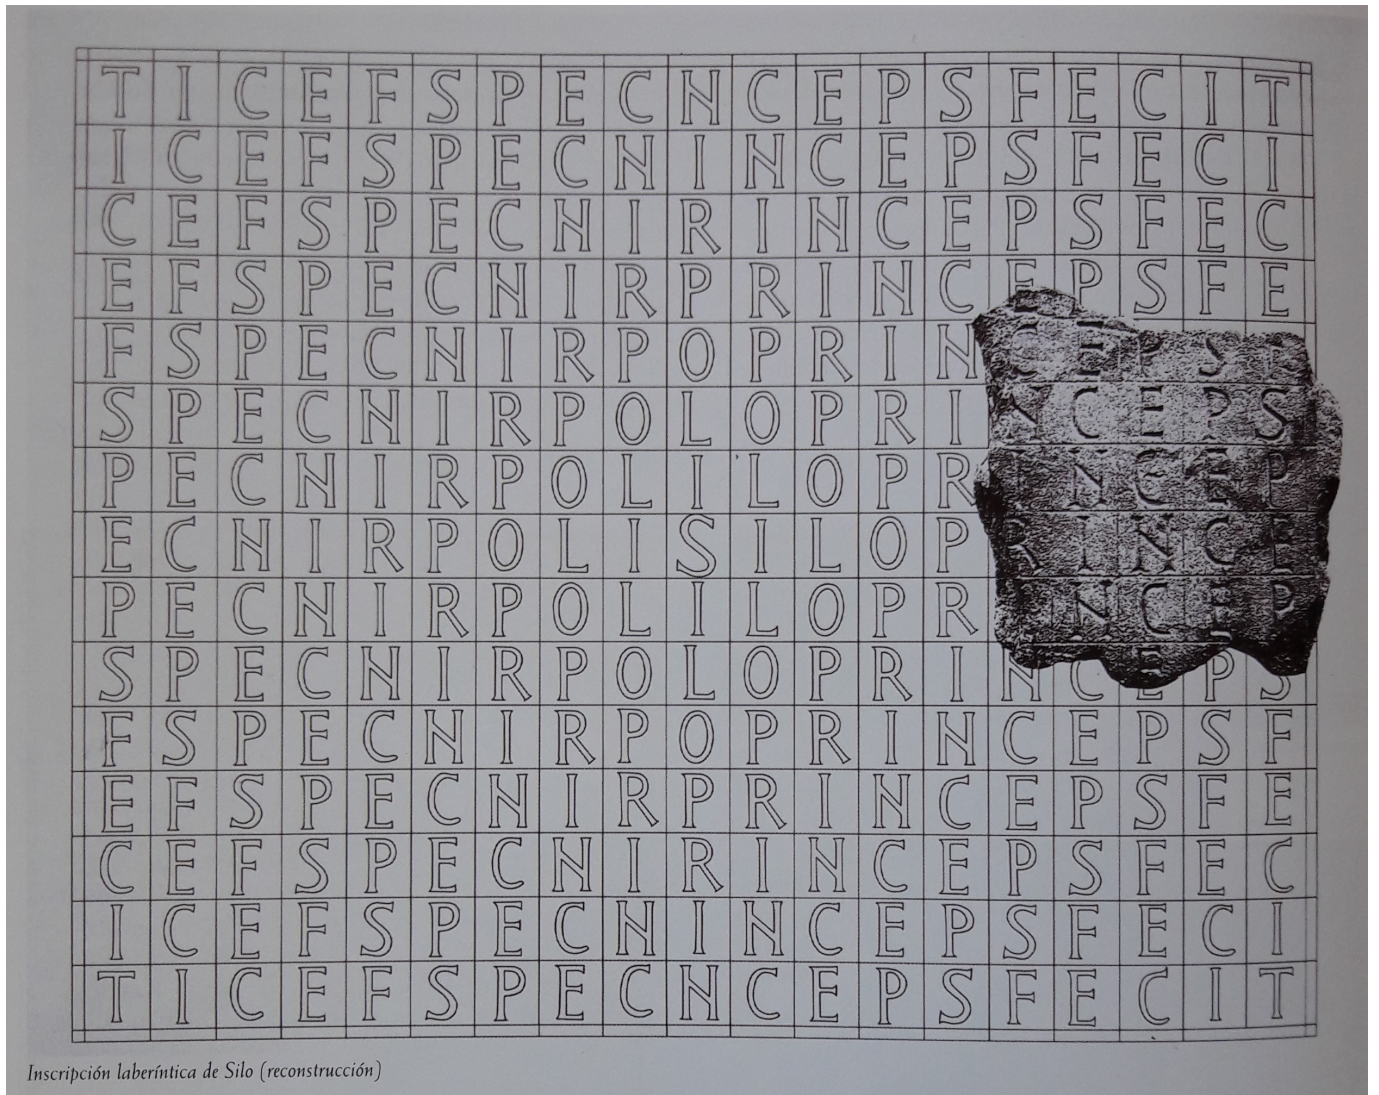 T I C E F S P E C N C E P S F E C I T
I C E F S P E C N I N C E P S F E C I
C E F S P E C N I R I N C E P S F E C
E F S P E C N I R P R I N C E P S F E
F S P E C N I R P O P R I N C E P S F
S P E C N I R P O L O P R I N C E P S
P E C N I R P O L I L O P R I N C E P
E C N I R P O L I S I L O P R I N C E
P E C N I R P O L I L O P R I N C E P
S P E C N I R P O L O P R I N C E P S
F S P E C N I R P O P R I N C E P S F
E F S P E C N I R P R I N C E P S F E
C E F S P E C N I R I N C E P S F E C
I C E F S P E C N I N C E P S F E C I
T I C E F S P E C N C E P S F E C I T
Inscripción laberíntica de Silo (reconstrucción)